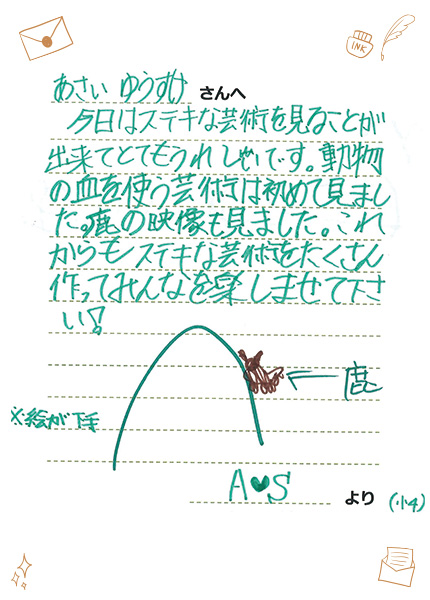 INK
あさい ゆうすけ さんへ
今日はステキな芸術を見ることが
出来てとてもうれしいです。動物
の血を使う芸術は初めて見まし
た。鹿の映像も見ました。これ
からもステキな芸術をたくさん
作ってみんなを楽しませて下さ
い!
←鹿
※絵が下手
A♥S より (小4)